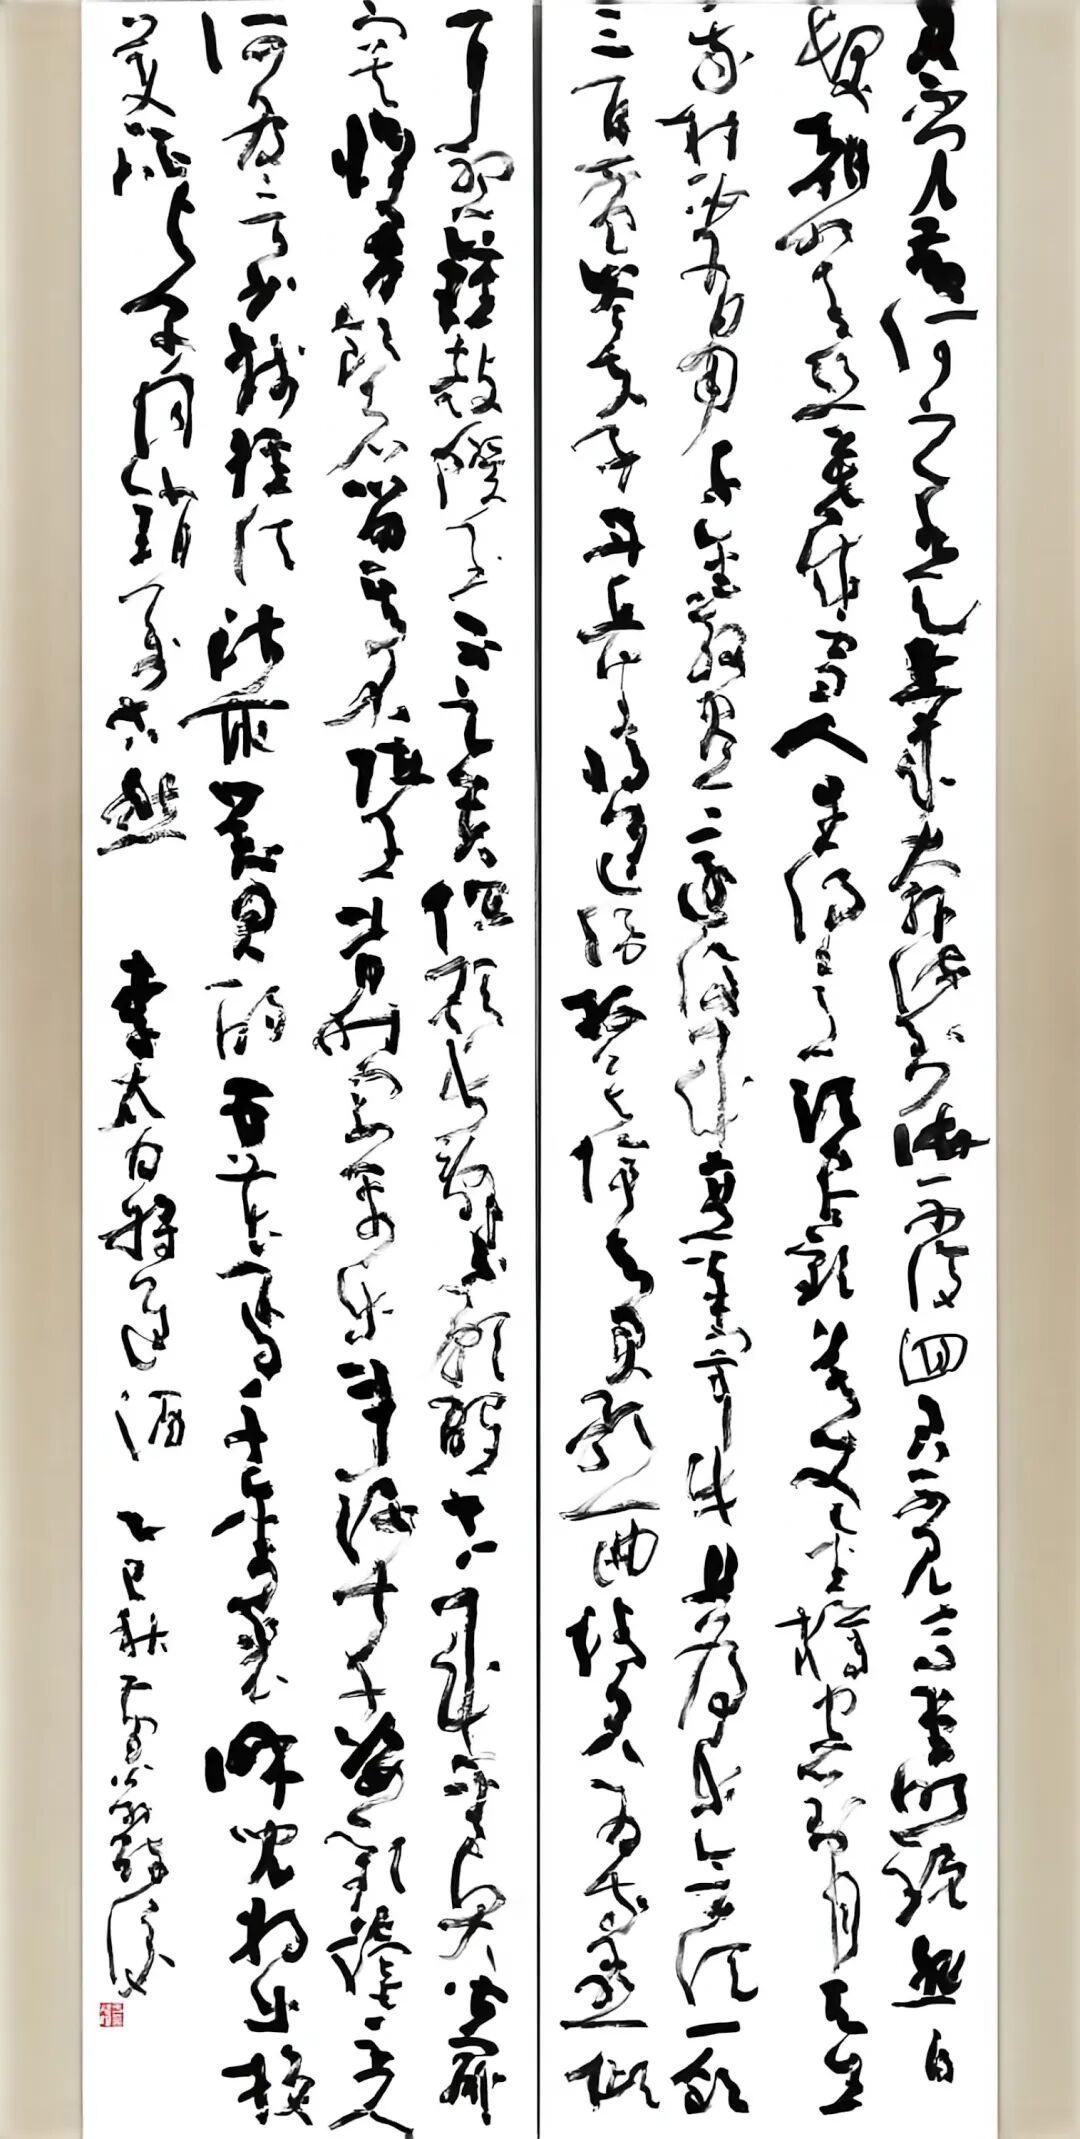 君不見黃河之水天上來奔流到海不復迴君不見高堂明鏡悲白
髮朝如青絲暮成雪人生得意須盡歡莫使金樽空對月天生
我材必有用千金散盡還復來烹羊宰牛且為樂會須一飲
三百杯岑夫子丹丘生將進酒杯莫停與君歌一曲請君為我傾
耳聽鐘鼓饌玉不足貴但願長醉不願醒古來聖賢皆寂
寞惟有飲者留其名陳王昔時宴平樂斗酒十千恣歡謔主人
何為言少錢徑須沽取對君酌五花馬千金裘呼兒將出換
美酒與爾同銷萬古愁 李太白將進酒 乙巳秋